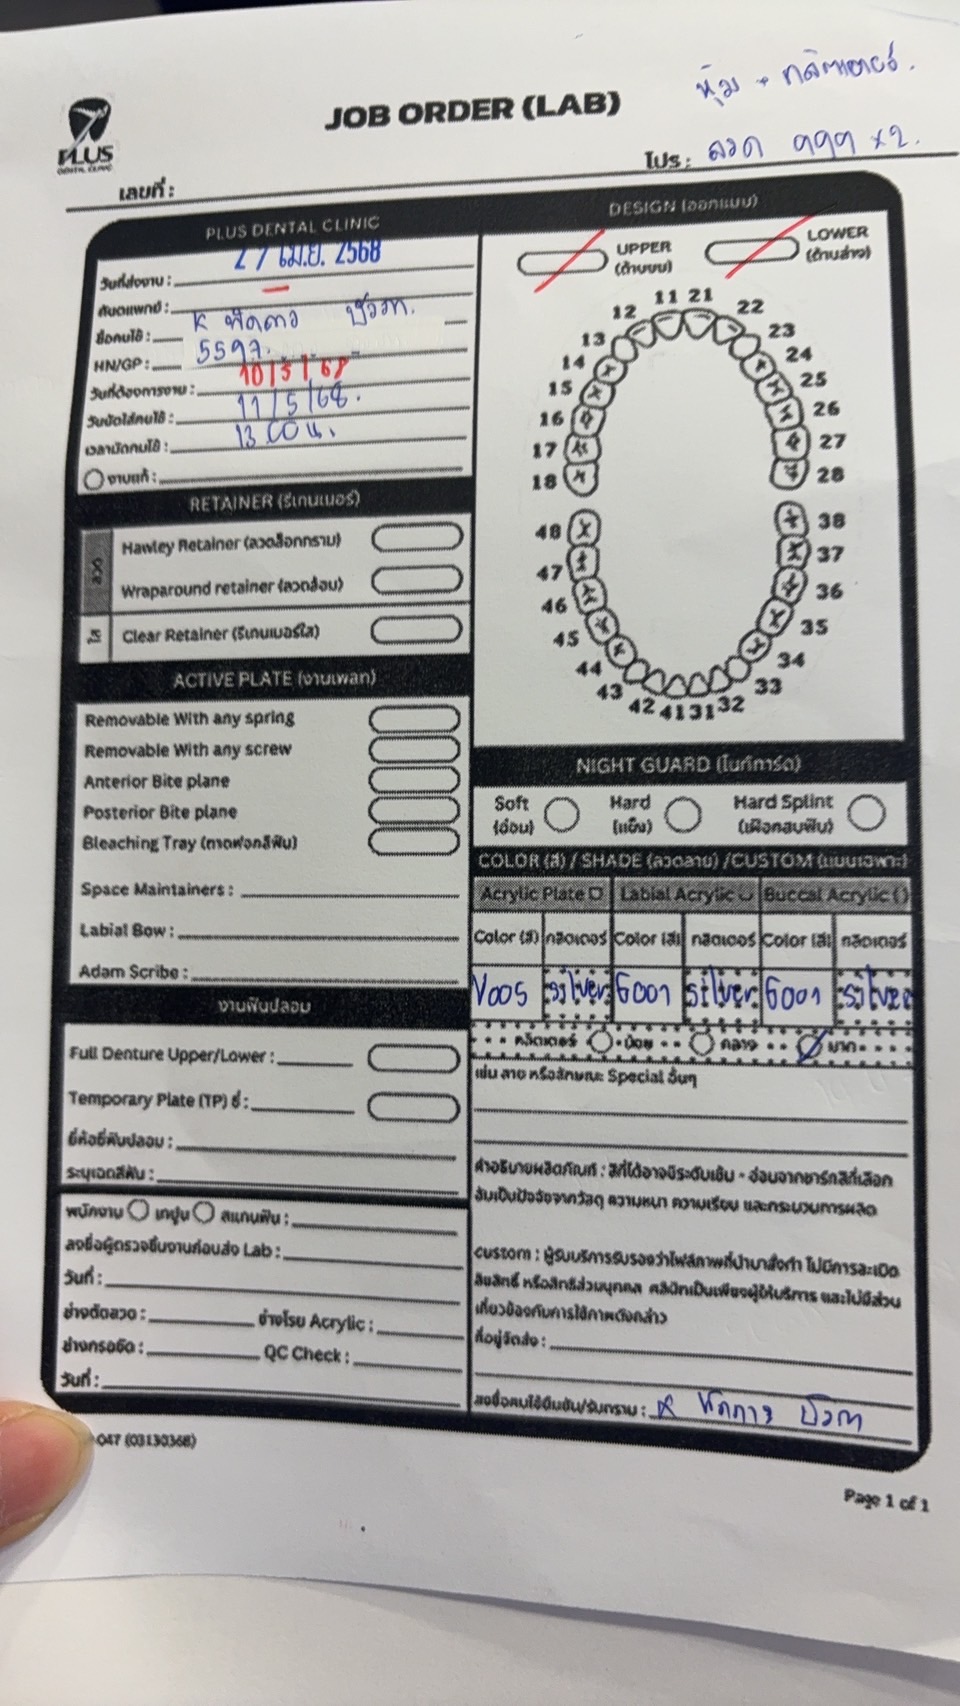 หุ้ม + กลิตเตอร์.
JOB ORDER (LAB)
PLUS
DENTAL CLINIC
โปร : ลวด 999 x 2.
เลขที่ :
PLUS DENTAL CLINIC
วันที่ส่งงาน : 27 เม.ย. 2568
ทันตแพทย์ : —
ชื่อคนไข้ : K
HN/GP : 5597
วันที่ต้องการงาน : 10/5/68
วันนัดใส่คนไข้ : 11/5/68.
เวลานัดคนไข้ : 13.00 น.
งานแก้ :
RETAINER (รีเทนเนอร์)
ลวด
Hawley Retainer (ลวดล็อกกราม)
Wraparound retainer (ลวดล้อม)
ใส
Clear Retainer (รีเทนเนอร์ใส)
ACTIVE PLATE (งานเพลท)
Removable With any spring
Removable With any screw
Anterior Bite plane
Posterior Bite plane
Bleaching Tray (ถาดฟอกสีฟัน)
Space Maintainers :
Labial Bow :
Adam Scribe :
งานฟันปลอม
Full Denture Upper/Lower :
Temporary Plate (TP) ซี่ :
ยี่ห้อซี่ฟันปลอม :
ระบุเฉดสีฟัน :
พนักงาน เทปูน สแกนฟัน :
ลงชื่อผู้ตรวจชิ้นงานก่อนส่ง Lab :
วันที่ :
ช่างดัดลวด : ช่างโรย Acrylic :
ช่างกรอขัด : QC Check :
วันที่ :
DESIGN (ออกแบบ)
UPPER
(ด้านบน)
LOWER
(ด้านล่าง)
11 21
12 22
13 23
14 24
15 25
16 26
17 27
18 28
48 38
47 37
46 36
45 35
44 34
43 33
42 41 31 32
NIGHT GUARD (ไนท์การ์ด)
Soft
(อ่อน)
Hard
(แข็ง)
Hard Splint
(เฝือกสบฟัน)
COLOR (สี) / SHADE (ลวดลาย) /CUSTOM (แบบเฉพาะ)
Acrylic Plate Labial Acrylic Buccal Acrylic
Color (สี) กลิตเตอร์ Color (สี) กลิตเตอร์ Color (สี) กลิตเตอร์
V005 silver G001 silver G001 silver
กลิตเตอร์ น้อย กลาง มาก
เช่น ลาย หรือลักษณะ Special อื่นๆ
คำอธิบายผลิตภัณฑ์ : สีที่ได้อาจมีระดับเข้ม - อ่อนจากชาร์ทสีที่เลือก
อันเป็นปัจจัยจากวัสดุ ความหนา ความเรียบ และกระบวนการผลิต
custom : ผู้รับบริการรับรองว่าไฟล์ภาพที่นำมาสั่งทำ ไม่มีการละเมิด
ลิขสิทธิ์ หรือสิทธิส่วนบุคคล คลินิกเป็นเพียงผู้ให้บริการ และไม่มีส่วน
เกี่ยวข้องกับการใช้ภาพดังกล่าว
ที่อยู่จัดส่ง :
ลงชื่อคนไข้ยืนยัน/รับทราบ : K
047 (03130368)
Page 1 of 1